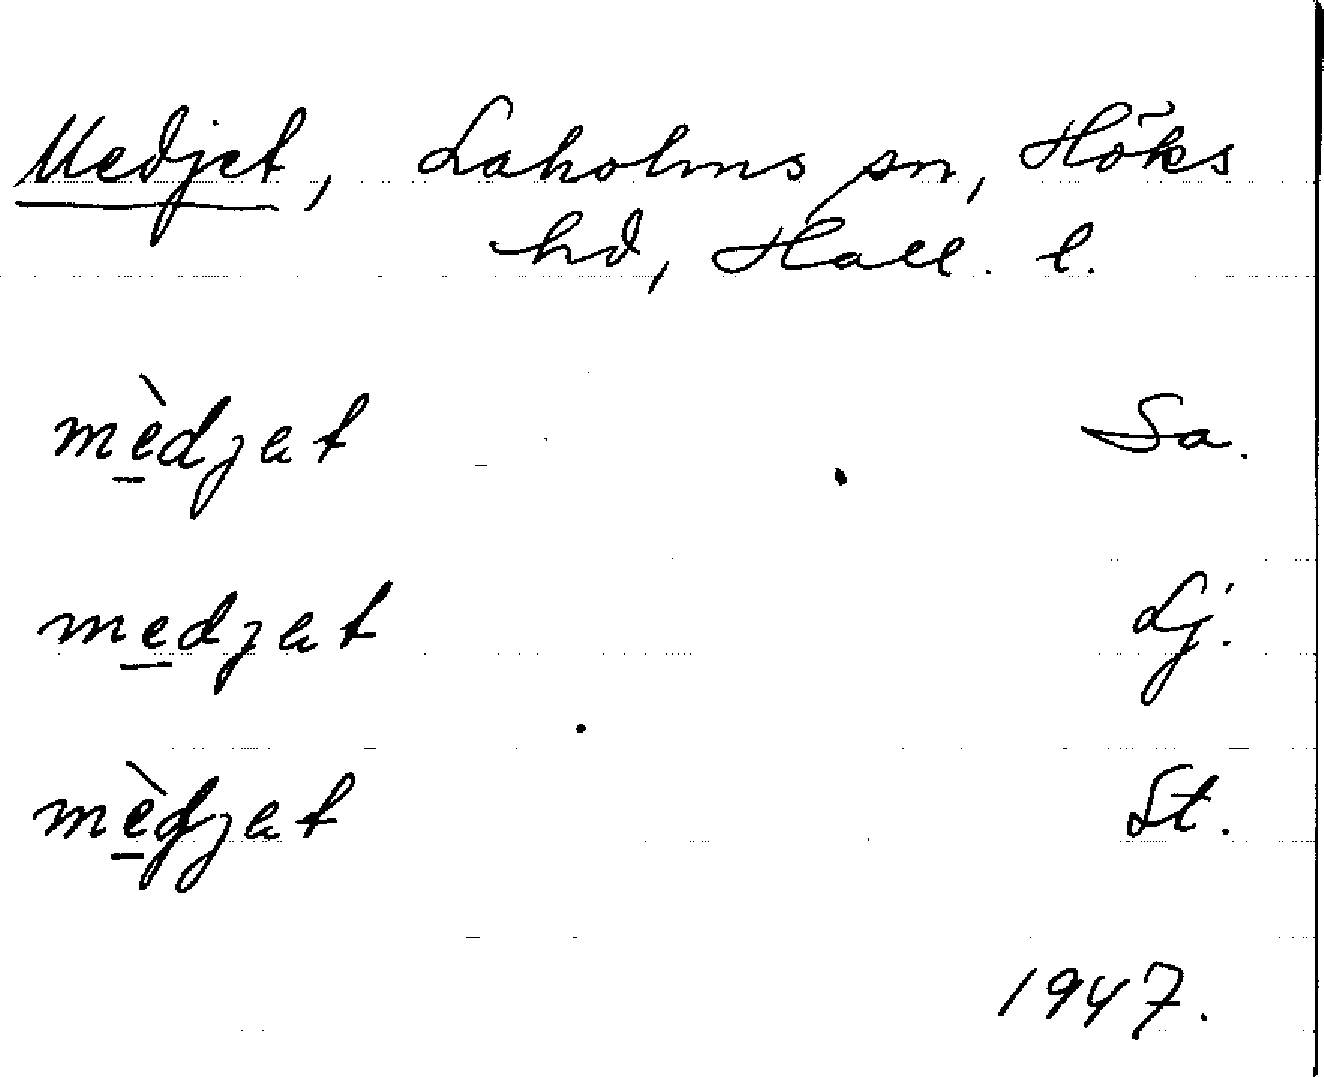 Medjet, Laholms sn, Höks
hd, Hall. l.
mèdjet Sa.
medjet Lj.
mèdjet St.
1947.